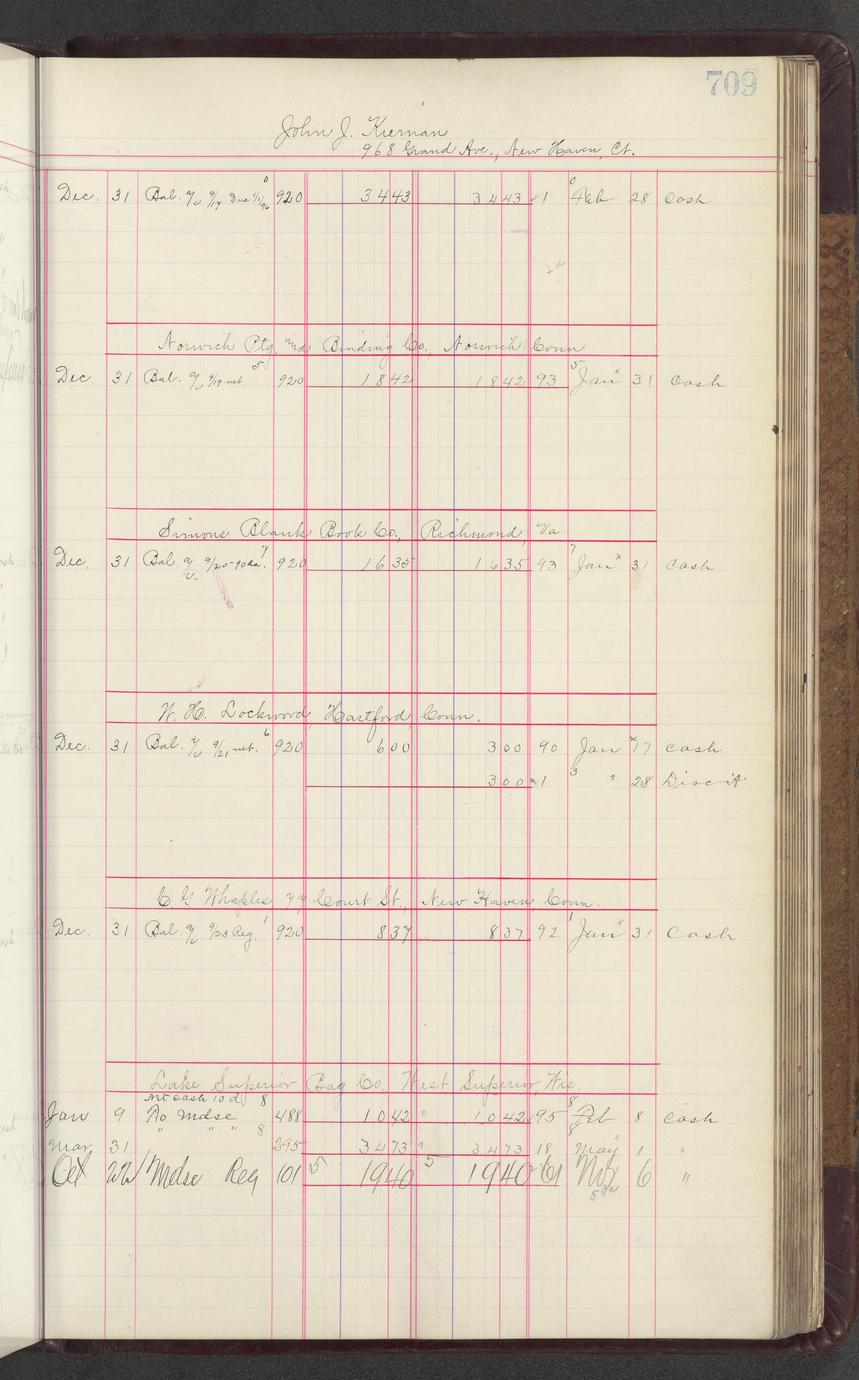 709
John J. Kiernan
968 Grand Ave., New Haven, Ct.
Dec. 31 Bal. a/c 9/17 Due 1/1/96 920 3443 3443 1 Feb 28 Cash
Norwich Ptg. and Binding Co., Norwich Conn
Dec. 31 Bal. a/c 9/19 net. 920 1842 1842 93 Jan 31 Cash
Simons Blank Book Co., Richmond, Va.
Dec. 31 Bal. a/c 9/20-90da. 920 1635 1635 93 Jan 31 Cash
W. H. Lockwood, Hartford, Conn.
Dec. 31 Bal. a/c 9/21 net. 920 600 300 90 Jan 17 Cash
300 1 " 28 Disc't
C G Whaples 77 Court St., New Haven, Conn.
Dec. 31 Bal. a/c 9/23 Reg. 920 837 837 92 Jan 31 Cash
Lake Superior Bag Co, West Superior, Wis.
Net Cash 10 d
Jan 9 To Mdse 488 1042 1042 95 Feb 8 Cash
Mar 31 " " " 295 3473 3473 18 May 1 "
Oct 22 Mdse Reg 101 1940 1940 61 Nov 6 "